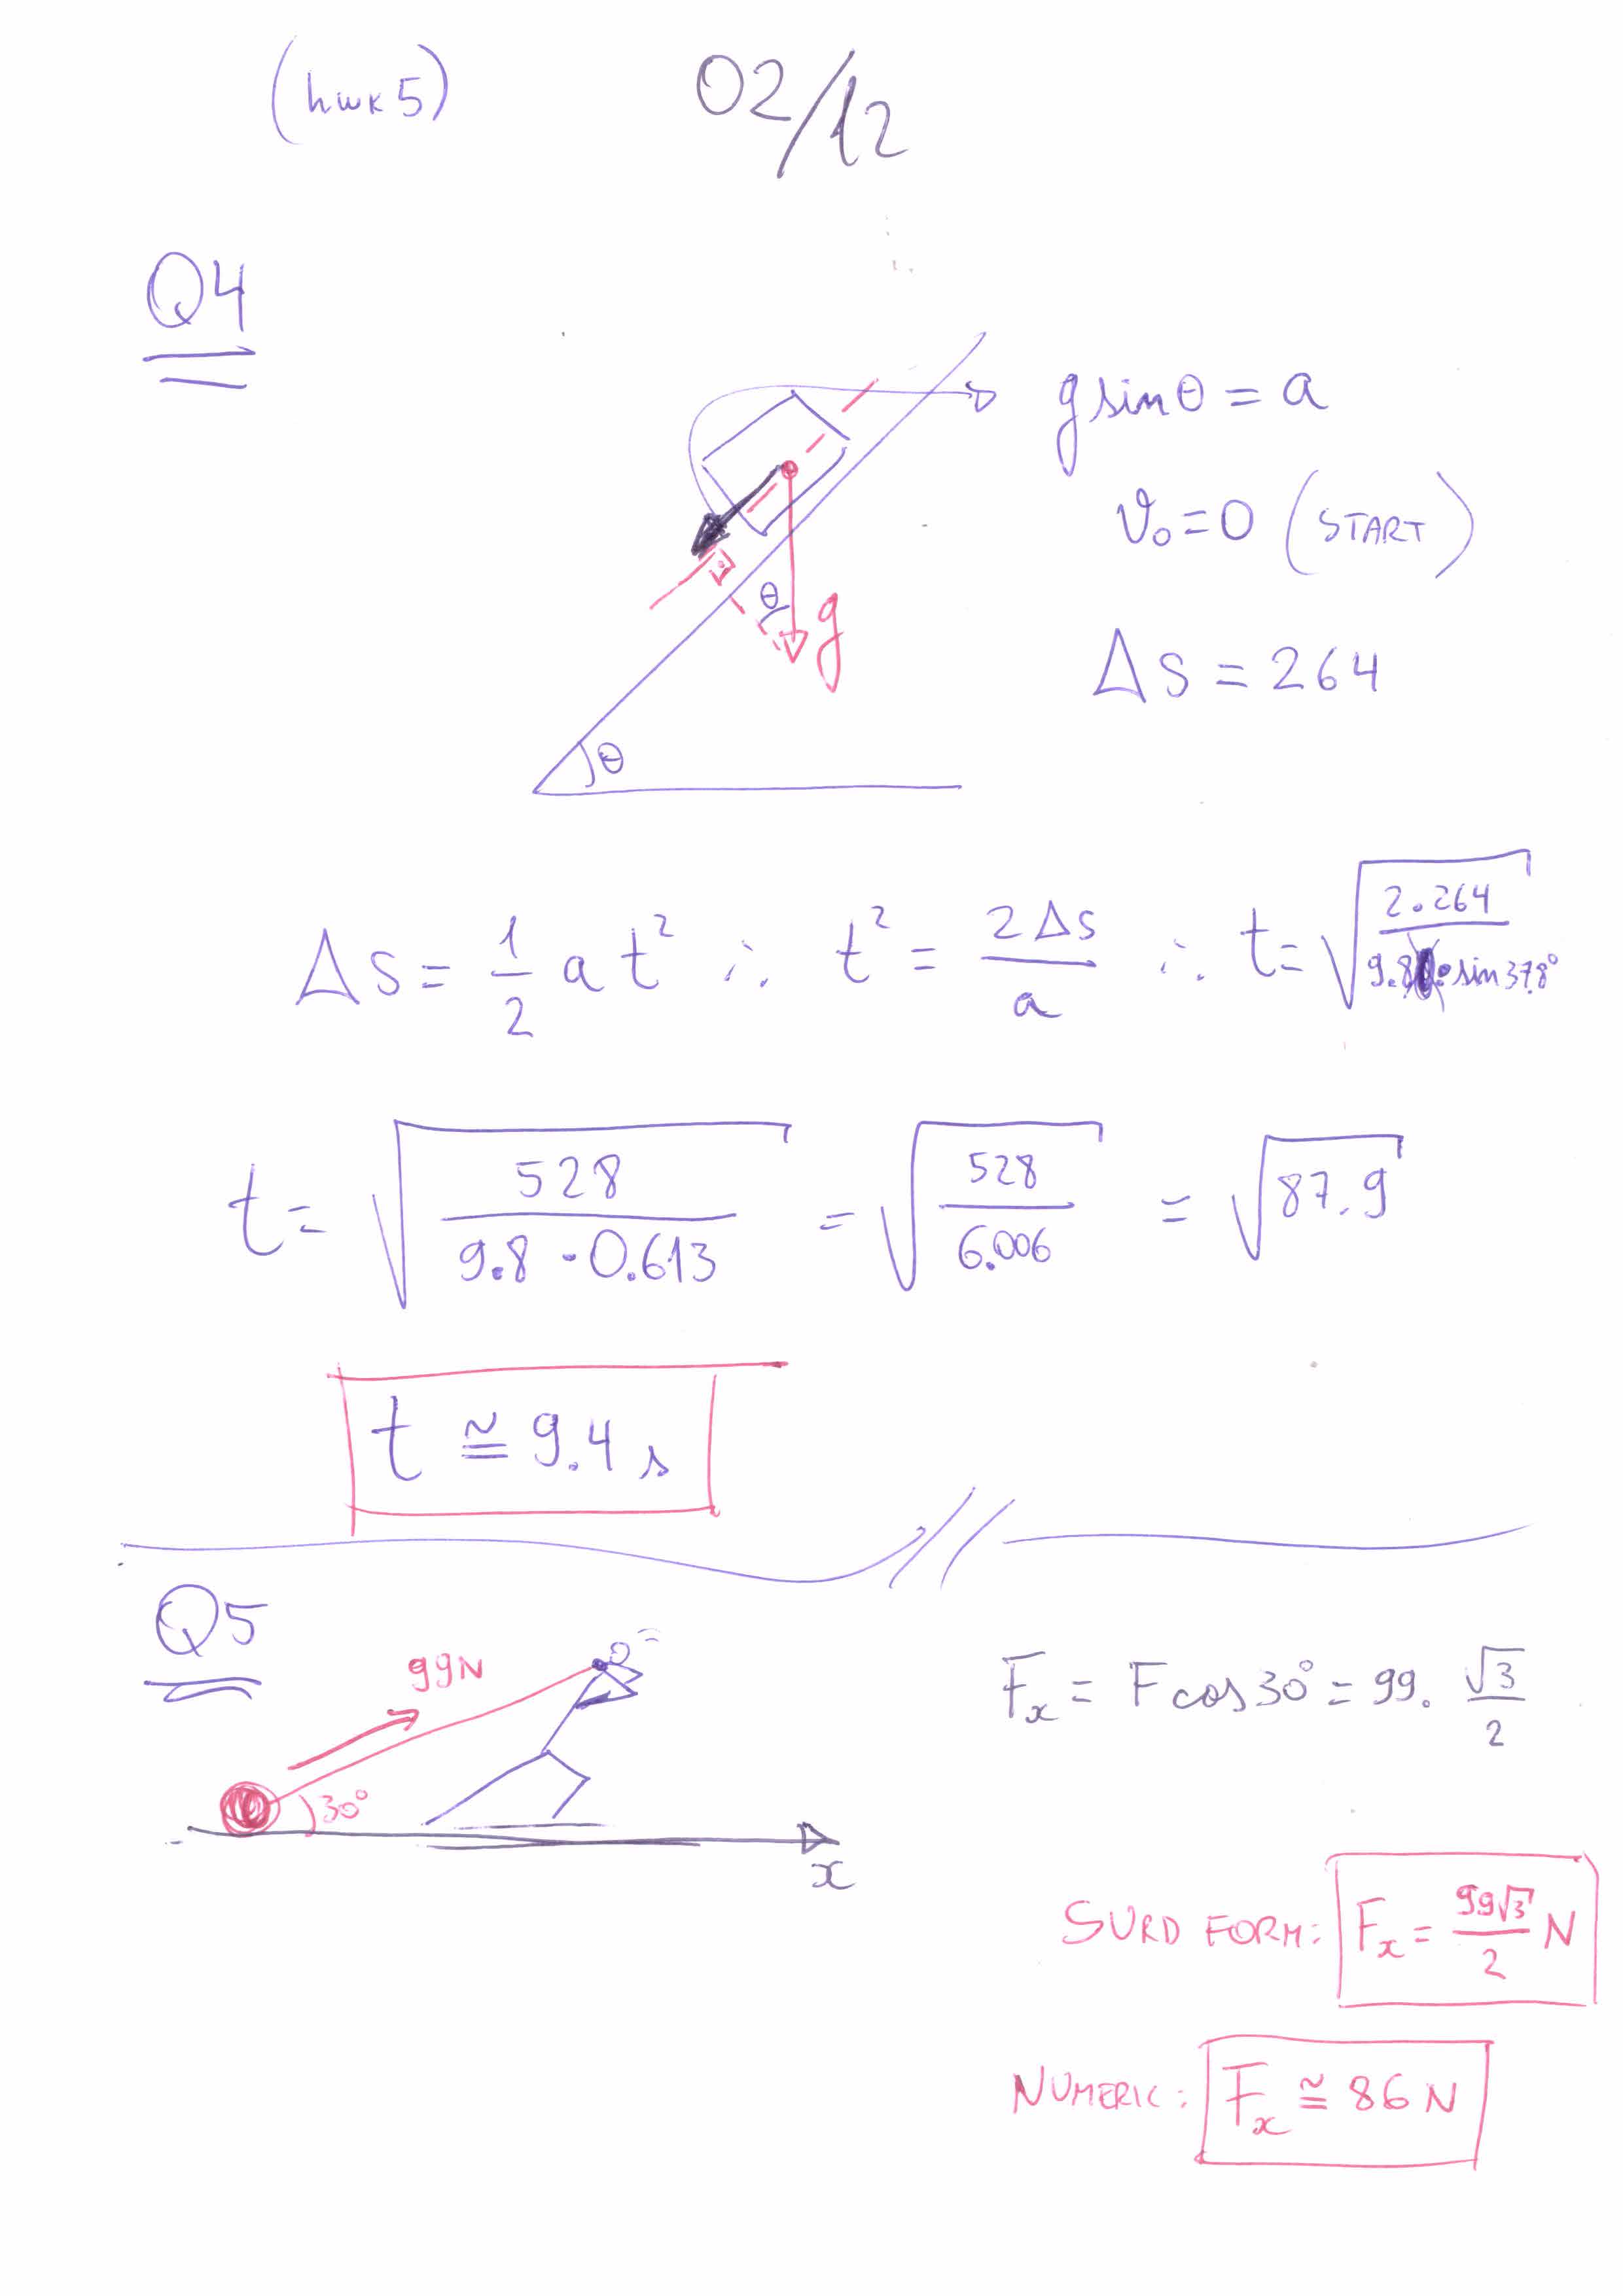 (hwk 5) 02/12
Q4
g sin θ = a
v₀ = 0 (START)
θ g
Δs = 264
θ
Δs = 1/2 a t² ∴ t² = 2Δs/a ∴ t = √(2.264/9.8 · sin 37.8°)
t = √(528/9.8 · 0.613) = √(528/6.006) = √87.9
t ≅ 9.4 s
Q5
99N
30°
x
Fₓ = F cos 30° = 99. √3/2
SURD FORM: Fₓ = 99√3/2 N
NUMERIC: Fₓ ≅ 86 N